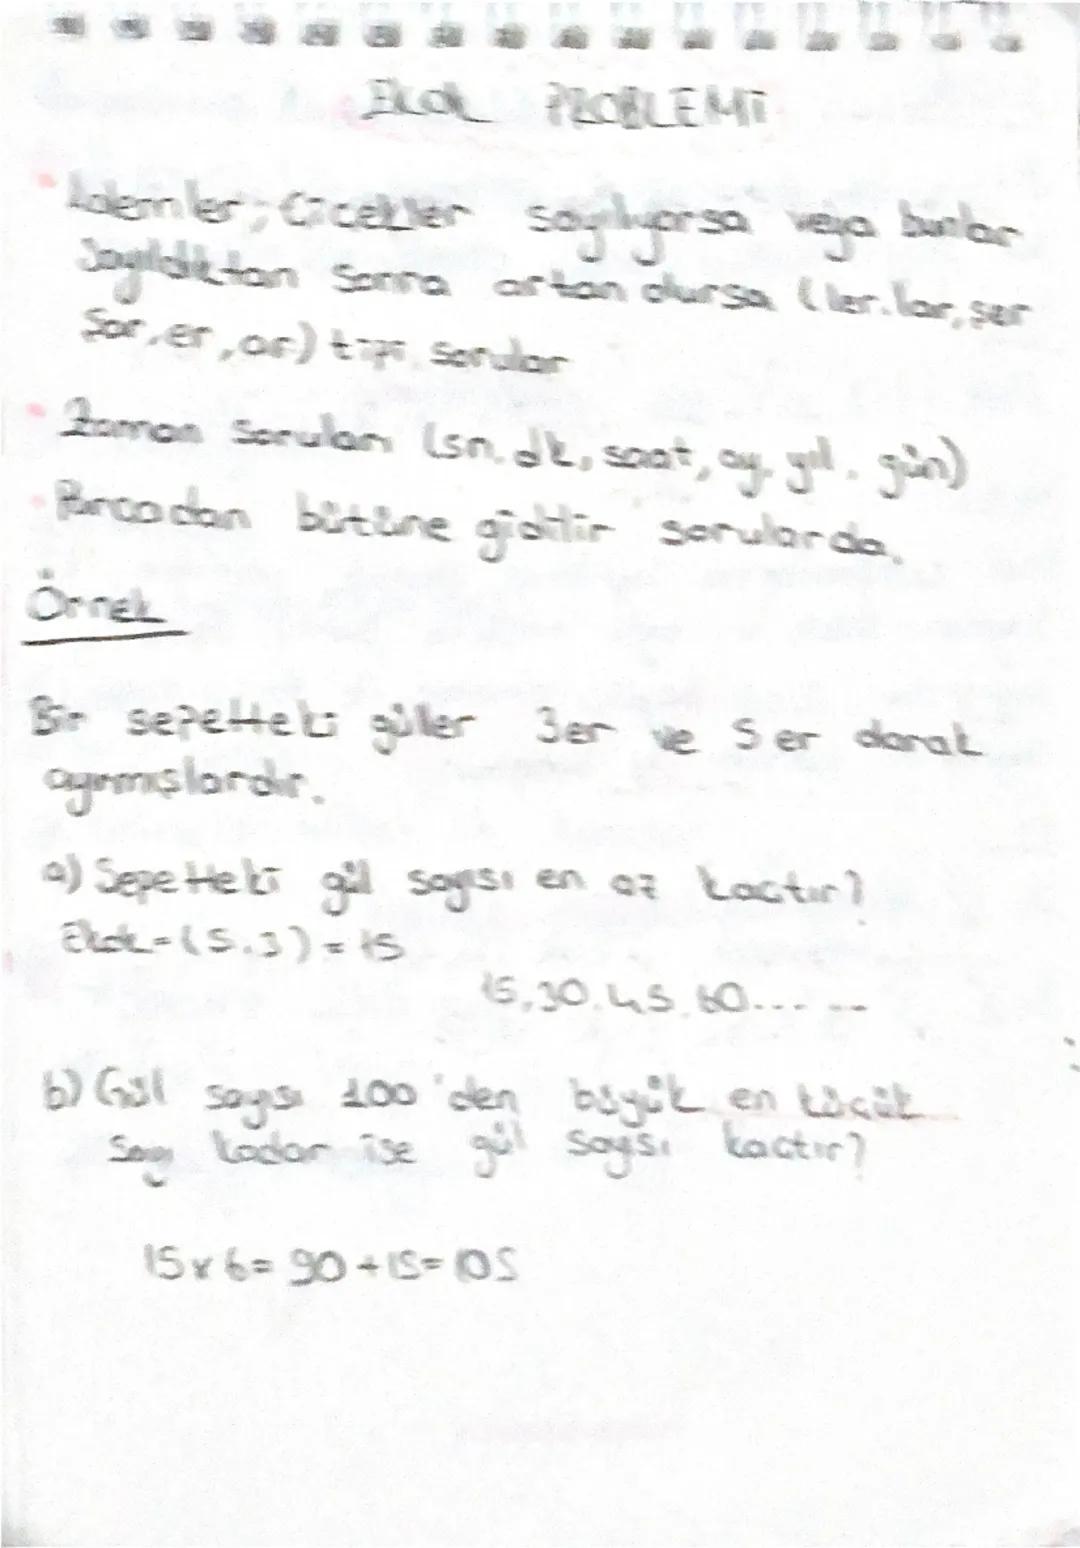 EKOK PROBLEMİ
Kalemler, Çiçekler sayılıyorsa veya bunlar
Sayıldıktan Sonra artan olursa (ler.lar, şer
Şar, er, ar) tipi sorular
Zaman Soruları (sn. dk, saat, ay. yıl. gün)
Parçadan bütüne gidilir sorularda.
Örnek
Bir sepetteki güller 3er ve 5 er olarak
ayırmışlardır.
a) Sepetteki gül sayısı en az kaçtır?
Ekok=(5.3)=15
15,30.45.60... ...
b) Gül sayısı 100'den büyük en küçük
Sayı kadar ise gül sayısı kaçtır?
15x6=90+15=105